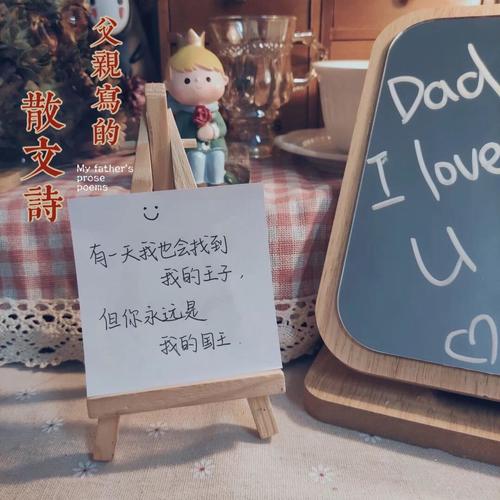 父親寫的
散文詩
My father's
prose
poems
有一天我也会找到
我的王子，
但你永远是
我的国王.
Dad
I love
U